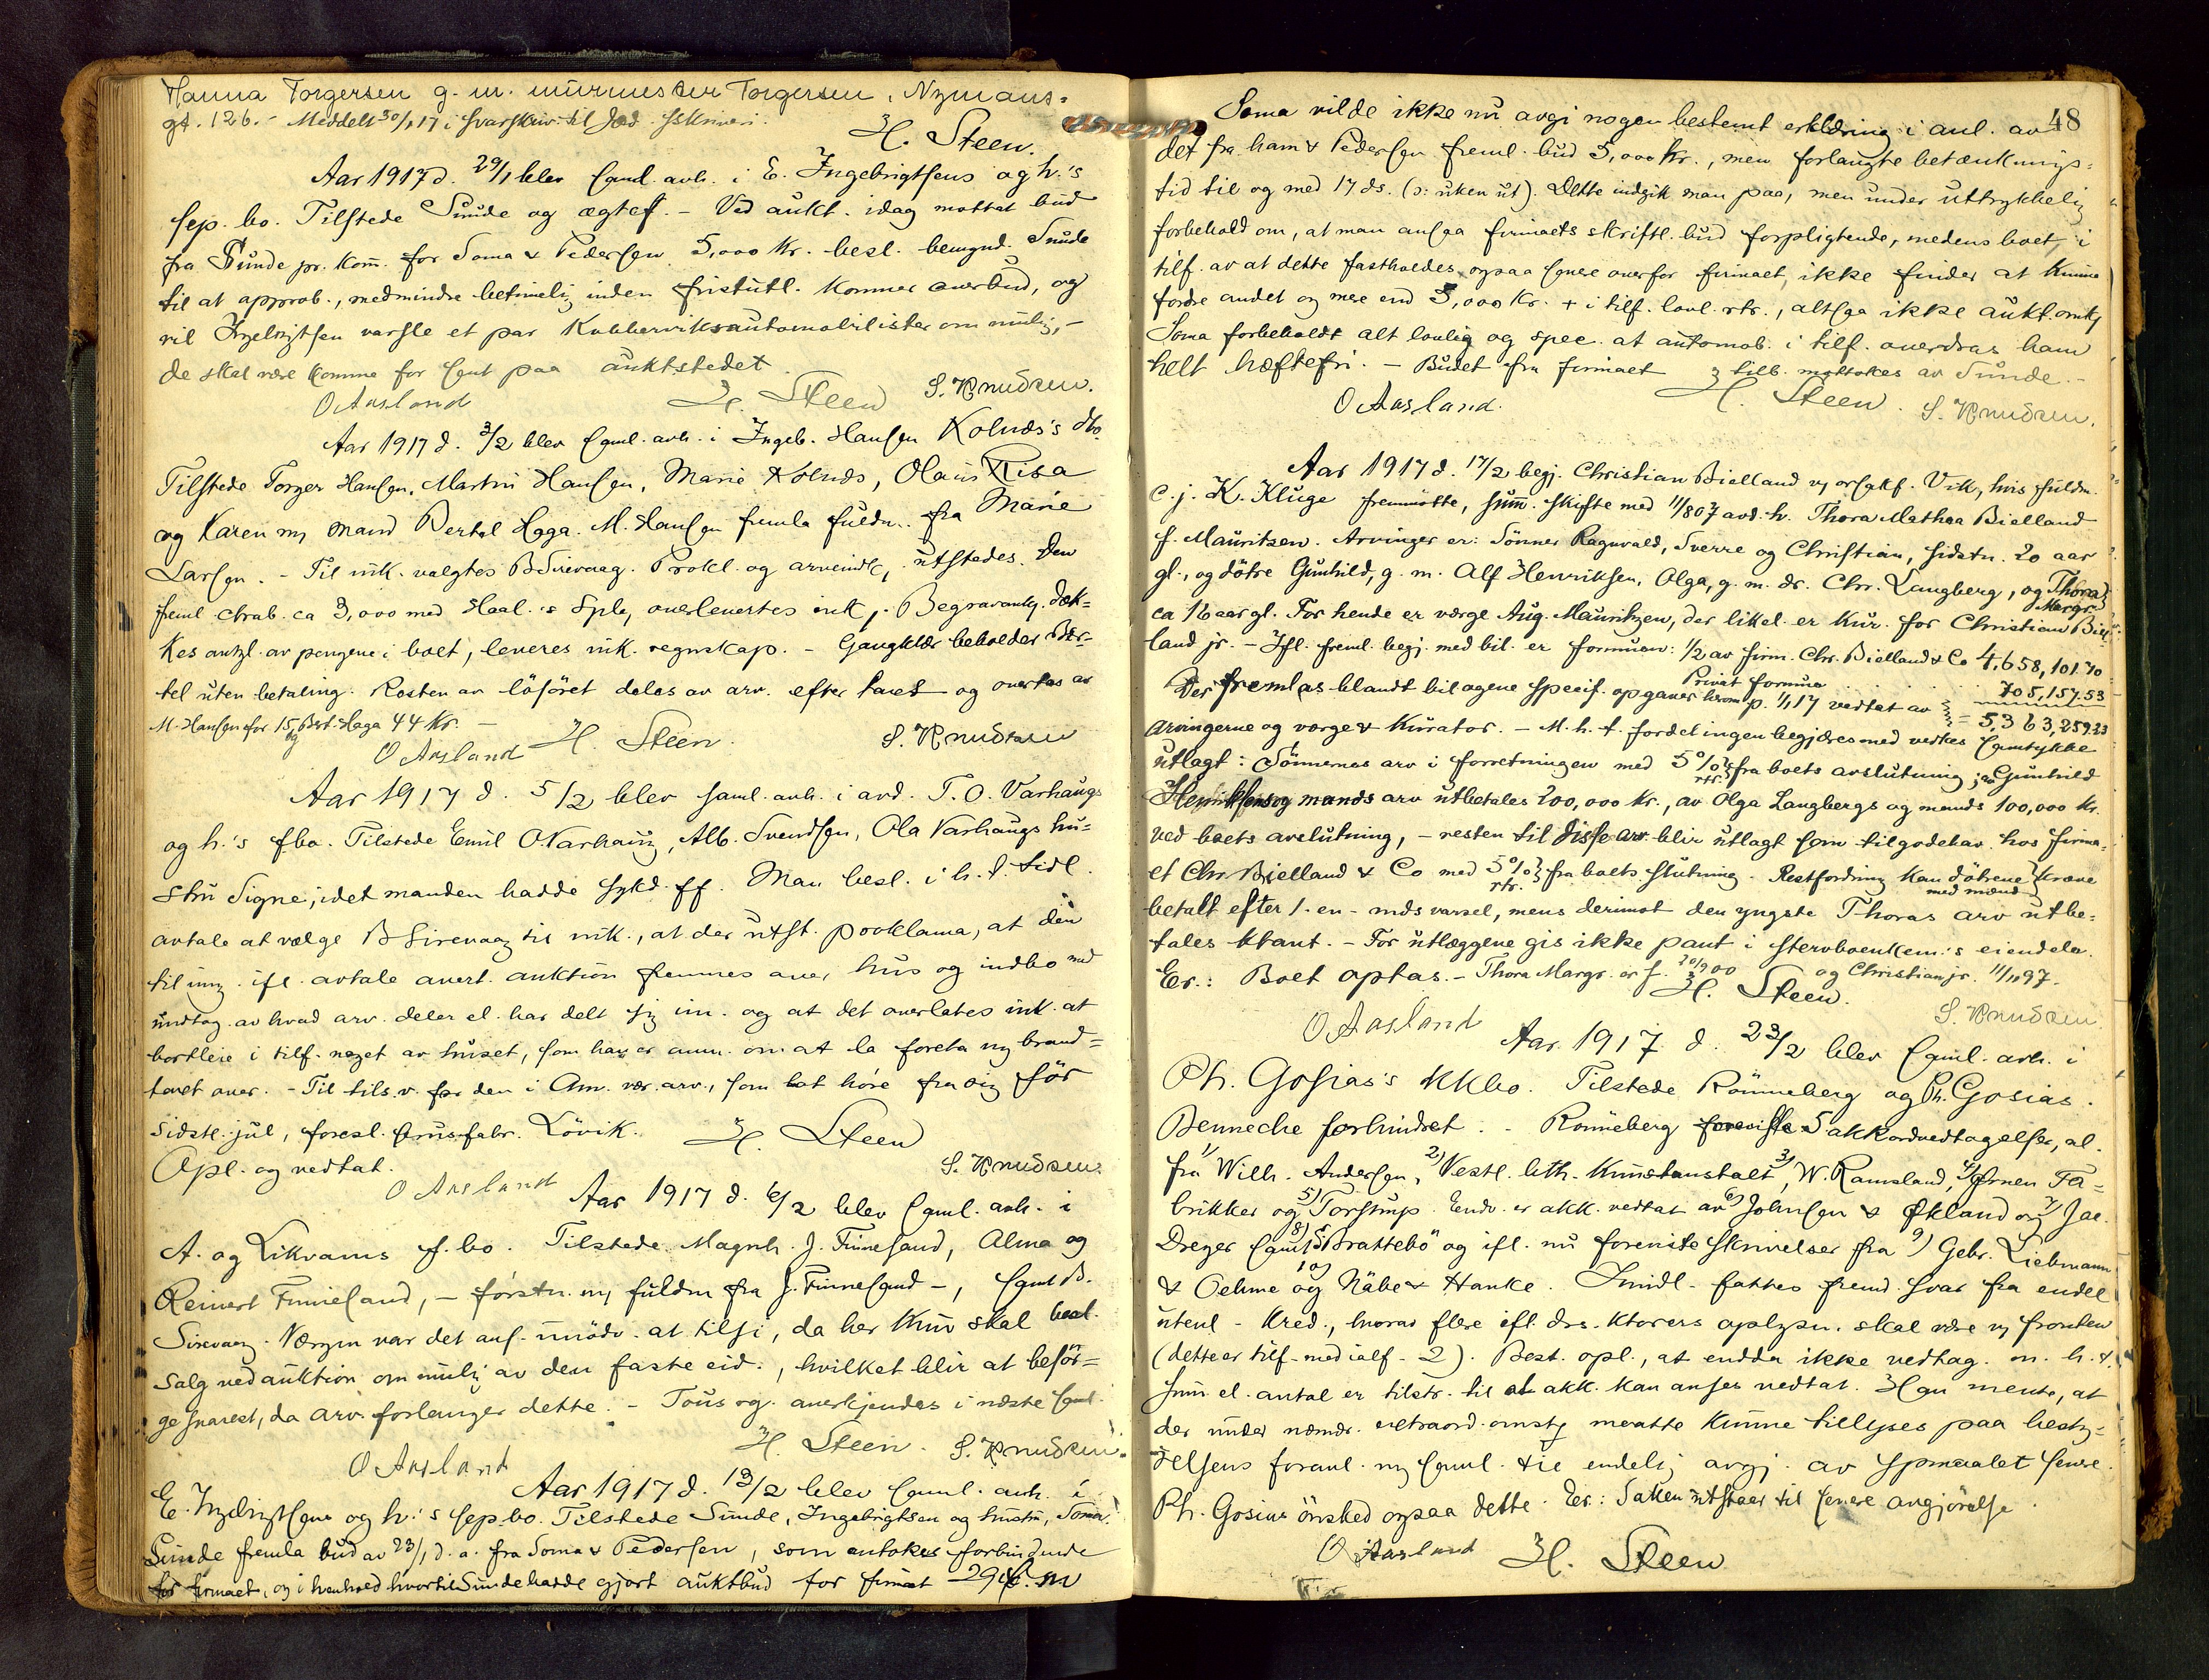 Hanna Torgersen g. m. murmester Torgersen, Nymans-
gt. 126. - Meddelt 30/1 17 i svarskriv. til Jæd. sskriveri.
H. Steen.
Aar 1917 d. 29/1 blev saml. avh. i E. Ingebrigtsens og h.'s
sep. bo. Tilstede Sunde og ægtef. - Ved aukt. idag mottat bud
fra Sunde pr. kom. for Soma & Pedersen 5,000 kr. besl. bemynd. Sunde
til at approb., medmindre betimelig inden fristutl. kommer overbud, og
vil Ingebrigtsen varsle et par Kubberviksautomobilister om mulig, -
de skal være komme for sent paa auktstedet.
O Aasland H. Steen S. Knudsen.
Aar 1917 d. 3/2 blev saml. avh. i Ingeb. Hansen Kolnes's dbo.
Tilstede Torger Hansen, Martin Hansen, Marie Kolnes, Olaus Risa
og Karen m. mand Bertel Haga. M. Hansen fremla fuldm. fra Marie
Larsen. - Til ink. valgtes B Sirevaag. Prokl. og arveindk. utstedes. Den
freml ctrab. ca 3,000 med Haal.s Spb, overlevertes ink. Begravomk. dæk-
kes antgl. av pengene i boet, leveres ink. regnskap. - Gangklær beholder Ber-
tel uten betaling. Resten av løsøret deles av arv. efter taxt og overtas av
M. Hansen for 15, Bert. Haga 44 kr. -
O Aasland H. Steen. S. Knudsen
Aar 1917 d. 5/2 blev saml. avh. i avd. T. O. Varhaugs
og h.'s fbo. Tilstede Emil O. Varhaug, Alb. Svendsen, Ola Varhaugs hu-
stru Signe, idet manden hadde sykd. ff. Man besl. i h. t. tidl.
avtale at vælge B Sirevaag til ink., at der utst. proklama, at den
til inn. ifl. avtale avert. auktion fremmes over hus og indbo med
undtag. av hvad arv. deler el. har delt sig im. og at det overlates ink. at
bortleie i tilf. noget av huset, som han er anm. om at la foreta ny brand-
taxt over. - Til tils.v. for den i Am. vær. arv., som lot høre fra sig før
sidstl. jul, foresl. brusfabr. Løvik. H. Steen
Opl. og vedtat. O Aasland S. Knudsen.
Aar 1917 d. 6/2 blev saml. avh. i
A. og Likvams f. bo. Tilstede Magnh. J. Finnesand, Alma og
Reinert Finnesand, - førstn. m. fuldm fra J. Finnesand -, samt B.
Sirevaag. Værgen var det anf. unødv. at tilsi, da her kun skal besl.
salg ved auktion om mulig av den faste eid., hvilket blir at besør-
ge snarest, da arv. forlanger dette. - Tous og. anerkjendes i næste saml.
O Aasland H. Steen. S. Knudsen.
Aar 1917 d. 13/2 blev saml. avh. i
E. Ingebrigtsens og h.'s sep bo. Tilstede Sunde, Ingebrigtsen og hustru, Soma.
Sunde fremla bud av 23/1 d. a. fra Soma & Pedersen, som antokes forbindende
for firmaet, og i henhold hvortil Sunde hadde gjort auktbud for firmaet 29 f. m.
48
Soma vilde ikke nu avgi nogen bestemt erklæring i anl. av
det fra ham & Pedersen freml. bud 5,000 kr., men forlangte betænknings-
tid til og med 17 ds. (ɔ: uken ut). Dette indgik man paa, men under uttrykkelig
forbehold om, at man ansaa firmaets skriftl. bud forpligtende, medens boet, i
tilf. av at dette fastholdes ogsaa senere overfor firmaet, ikke finder at kunne
fordre andet og mere end 5,000 kr. + i tilf. lovl. rtr., altsaa ikke aukt.omk.
Soma forbeholdt alt lovlig og spec. at automob. i tilf. overdras ham
helt hæftefri. - Budet fra firmaet tilb. mottokes av Sunde. -
O Aasland. H. Steen. S. Knudsen.
Aar 1917 d. 17/2 begj. Christian Bielland v, orsakf. Vik, hvis fuldm.
c. j. K. Kluge fremmøtte, sum. skifte med 11/8 07 avd. h. Thora Mathea Bielland
f. Mauritzen. Arvinger er: Sønner Ragnvald, Sverre og Christian, sidstn. 20 aar
gl., og døtre Gunhild, g. m. Alf Henriksen, Olga, g. m. dr. Chr. Langberg, og Thora Margr.
ca 16 aar gl. For hende er værge Aug. Mauritzen, der likel. er kur. for Christian Biel-
land jr. - Ifl. freml. begj. med bil. er formuen: 1/2 av firm. Chr. Bielland & Co 4,658,101.70
Privat formue 705,157.53
Der fremlas blandt bilagene specif. opgaver herom p. 1/1 17 vedtat av = 5,363,259.23
arvingerne og værge & kurator. - M. h. t. fordelingen begjæres med verkes samtykke
utlagt: Sønnernes arv i forretningen med 5 % rtr. fra boets avslutning, av Gunhild
Henriksens og mands arv utbetales 200,000 kr., av Olga Langbergs og mands 100,000 kr.
ved boets avslutning, - resten til disse arv. blir utlagt som tilgodehav. hos firma-
et Chr. Bielland & Co med 5 % rtr. fra boets slutning. Restfordring kan døtrene med mænd kræve
betalt efter 1 - en - mds varsel, mens derimot den yngste Thoras arv utbe-
tales ktant. - For utlæggene gis ikke pant i stervboenkem.'s eiendele.
Er.: Boet optas. - Thora Margr. er f. 20/9 00 og Christian jr. 11/11 97.
O Aasland H. Steen. S. Knudsen.
Aar 1917 d. 23/2 blev saml. avh. i
Ph. Gosias's kkbo. Tilstede Rönneberg og Ph. Gosias.
Benneche forhindret. - Rönneberg foreviste 5 akkordvedtagelser, al.
fra 1) Wilh. Andersen, 2) Vestl. lith. Kunstanstalt, 3) W. Ramsland, 4) Ørnen Fa-
brikker og 5) Torstrup. Endv. er akk. vedtat av 6) Johnsen & Økland og 7) Jac.
Dreyer samt 8) "Brattebø" og ifl. nu foreviste skrivelser fra 9) Gebr. Liebmann
& Oehme og 10) Näbe & Hanke. Imidl. fattes fremd. svar fra endel
utenl. kred., hvorav flere ifl. drs. ktorers oplysn. skal være v, fronten
(dette er tilf. med ialf. 2). Best. opl., at endda ikke vedtag. m. h. t.
sum el. antal er tilstr. til at akk. kan anses vedtat. Han mente, at
der under nævnte extraord. omst. maatte kunne tillyses paa besty-
relsens foranl. ny saml. til endelig avgj. av spmaalet senere.
Ph. Gosias ønsked ogsaa dette. Er.: Saken utstaar til senere avgjørelse.
O Aasland H. Steen